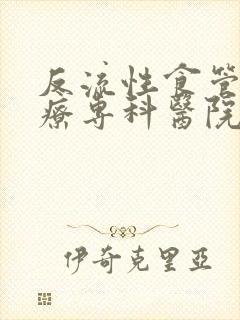 反流性食管
療專科醫院
伊奇克里亞